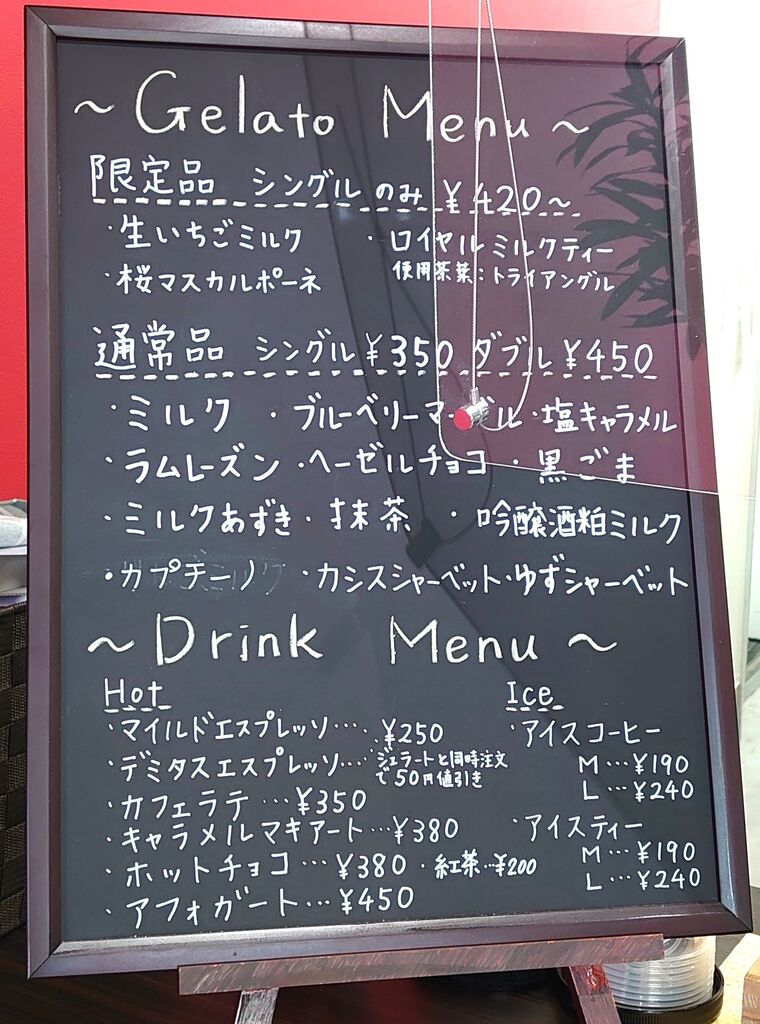 ~ Gelato Menu ~
限定品 シングルのみ ¥420~
・生いちごミルク ・ロイヤルミルクティー
・桜マスカルポーネ 使用茶葉:トライアングル
通常品 シングル ¥350 ダブル ¥450
・ミルク ・ブルーベリーマーブル ・塩キャラメル
・ラムレーズン ・ヘーゼルチョコ ・黒ごま
・ミルクあずき ・抹茶 ・吟醸酒粕ミルク
・カプチーノ ・カシスシャーベット ・ゆずシャーベット
~ Drink Menu ~
Hot
・マイルドエスプレッソ…・ ¥250
・デミタスエスプレッソ… ジェラートと同時注文
で50円値引き
・カフェラテ…¥350
・キャラメルマキアート…¥380
・ホットチョコ…¥380 ・紅茶…¥200
・アフォガート…¥450
Ice
・アイスコーヒー
M…¥190
L…¥240
・アイスティー
M…¥190
L…¥240